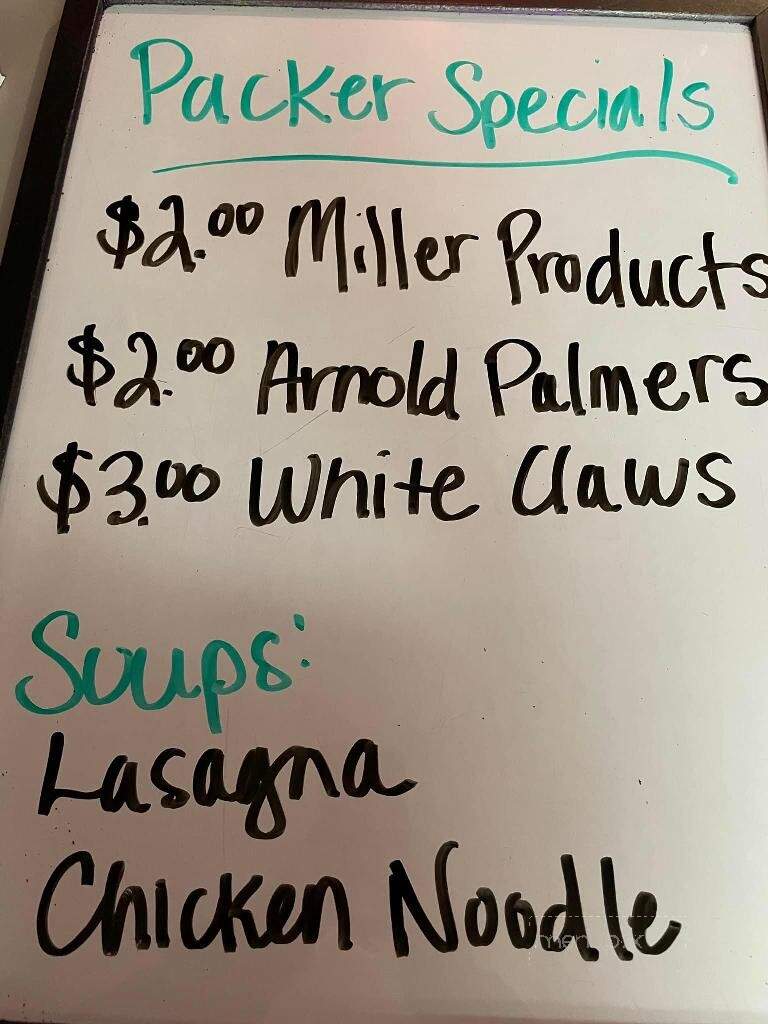 Packer Specials
$2.00 Miller Products
$2.00 Arnold Palmers
$3.00 White Claws
Soups:
Lasagna
Chicken Noodle